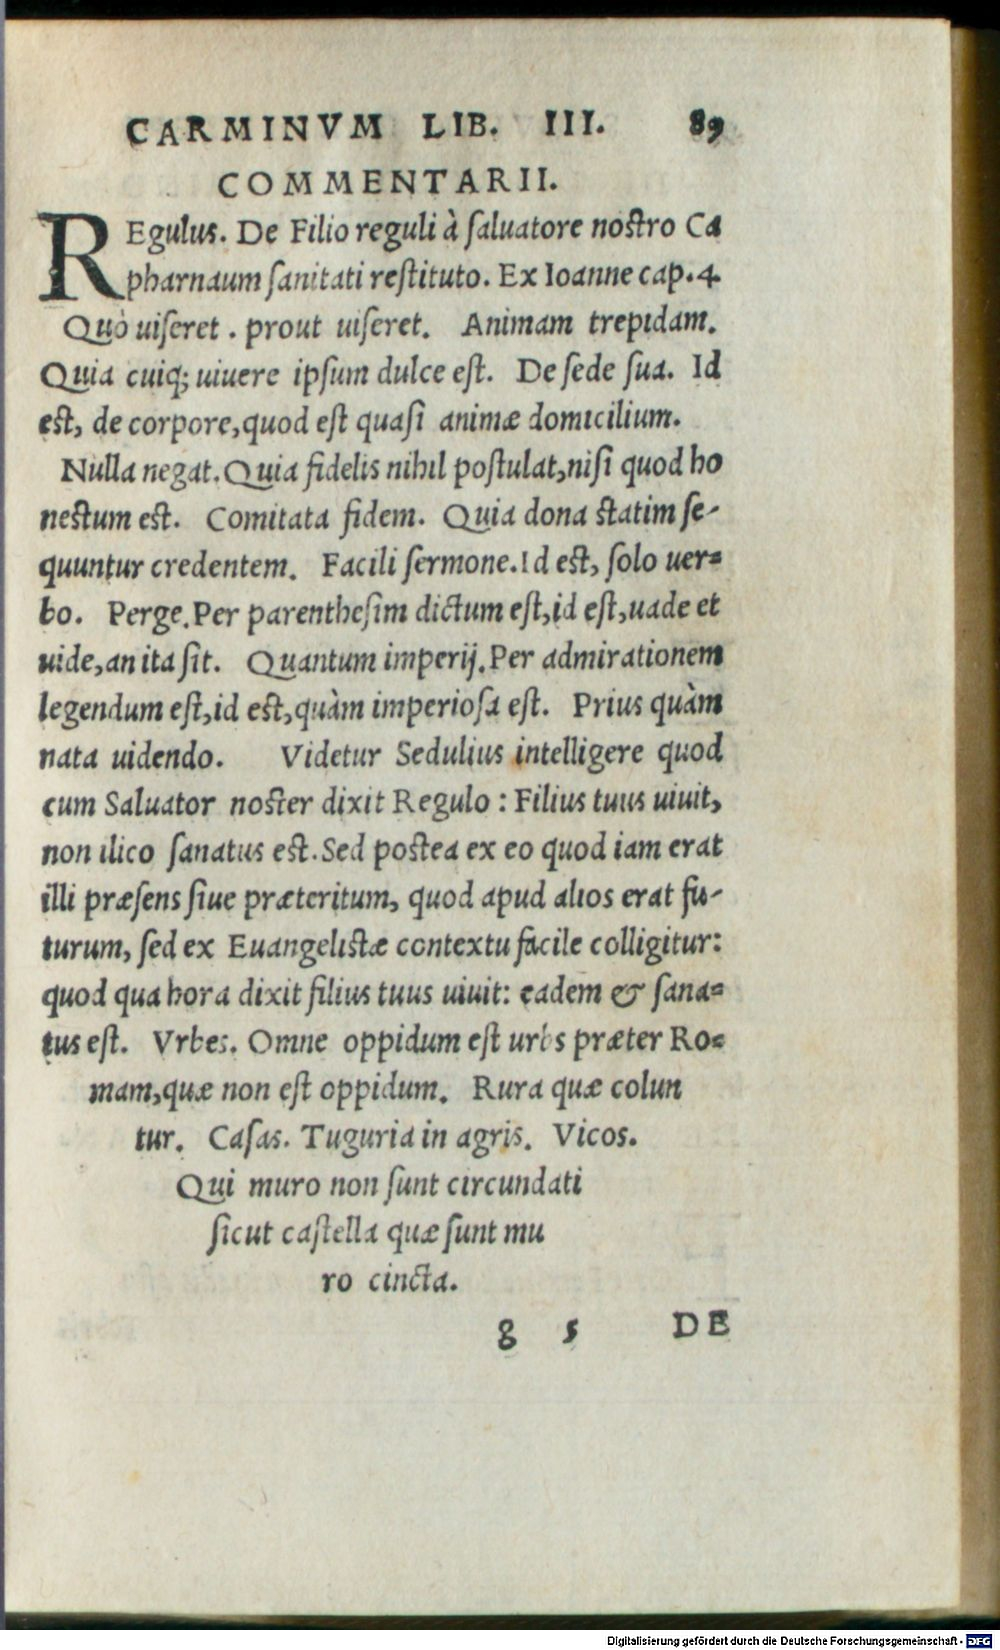 CARMINVM LIB. III. 89
COMMENTARII.
REgulus. De Filio reguli à ſaluatore noſtro Ca
pharnaum ſanitati reſtituto. Ex Ioanne cap.4
Quò uiſeret. prout uiſeret. Animam trepidam.
Quia cuiq; uiuere ipſum dulce eſt. De ſede ſua. Id
eſt, de corpore,quod eſt quaſi animæ domicilium.
Nulla negat. Quia fidelis nihil poſtulat,niſi quod ho
neſtum eſt. Comitata fidem. Quia dona ſtatim ſe-
quuntur credentem. Facili ſermone. Id eſt, ſolo uer=
bo. Perge. Per parentheſim dictum eſt,id eſt,uade et
uide,an ita ſit. Quantum imperij. Per admirationem
legendum eſt,id eſt,quàm imperioſa eſt. Prius quàm
nata uidendo. Videtur Sedulius intelligere quod
cum Saluator noſter dixit Regulo : Filius tuus uiuit,
non ilico ſanatus eſt. Sed poſtea ex eo quod iam erat
illi præſens ſiue præteritum, quod apud alios erat fu-
turum, ſed ex Euangeliſtæ contextu facile colligitur:
quod qua hora dixit filius tuus uiuit: eadem & ſana=
tus eſt. Vrbes. Omne oppidum eſt urbs præter Ro=
mam,quæ non eſt oppidum. Rura quæ colun
tur. Caſas. Tuguria in agris. Vicos.
Qui muro non ſunt circundati
ſicut caſtella quæ ſunt mu
ro cincta.
g 5 DE
Digitalisierung gefördert durch die Deutsche Forschungsgemeinschaft - DFG